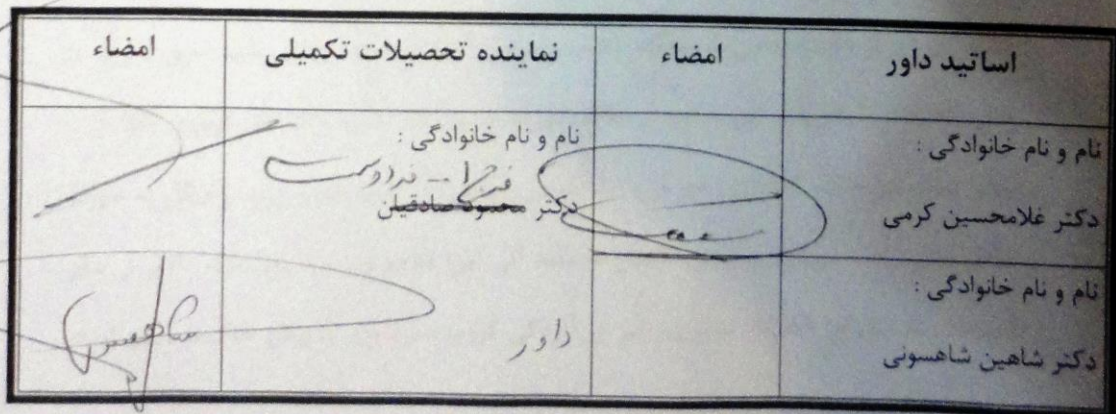 اساتید داور
امضاء
نماینده تحصیلات تکمیلی
امضاء
نام و نام خانوادگی :
دکتر غلامحسین کرمی
نام و نام خانوادگی :
دکتر محمود صادقیان
نام و نام خانوادگی :
دکتر شاهین شاهسونی
داور